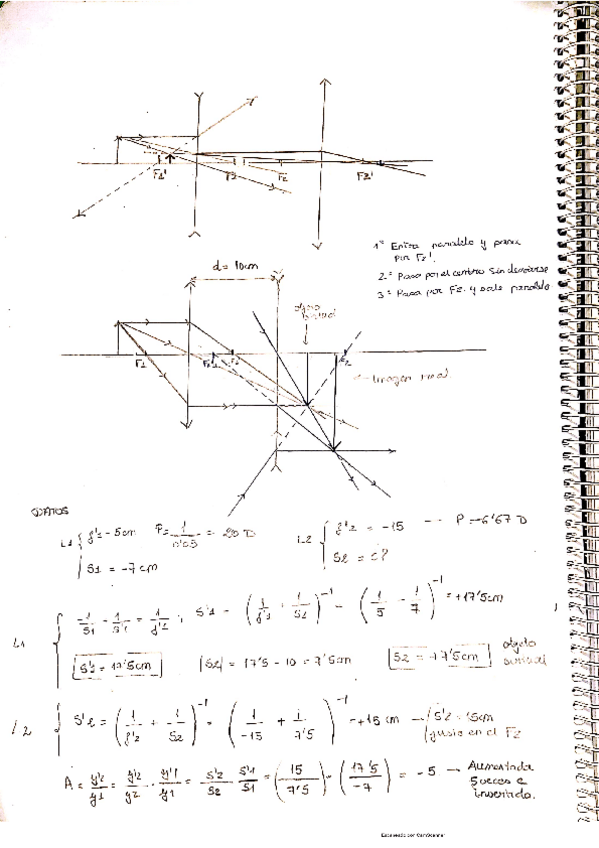 F2' F2 F2 F2'
1º Entra paralelo y pasa
por F2'.
2º Pasa por el centro sin desviarse
3º Pasa por F2 y sale paralelo
d = 10cm
objeto
virtual
F1 F2
Imagen real
DATOS
L1 { f'1 = 5cm P = 1/0'05 = 20 D
S1 = -7cm
L2 { f'2 = -15 P = -6'67 D
S2 = ¿?
L1
1/S1 - 1/S'1 = 1/f'1 ; S'1 = (1/f'1 + 1/S1)^-1 = (1/5 - 1/7)^-1 = +17'5cm
S'1 = 17'5cm |S2| = 17'5 - 10 = 7'5cm S2 = +7'5cm objeto
virtual
L2
S'2 = (1/f'2 + 1/S2)^-1 = (1/-15 + 1/7'5)^-1 = +15 cm S'2 = 15cm
justo en el F2
A = y'2/y1 = y'2/y2 · y'1/y1 = S'2/S2 · S'1/S1 = (15/7'5) = (17'5/-7) = -5 → Aumentada
5 veces e
invertida.
Escaneado por CamScanner